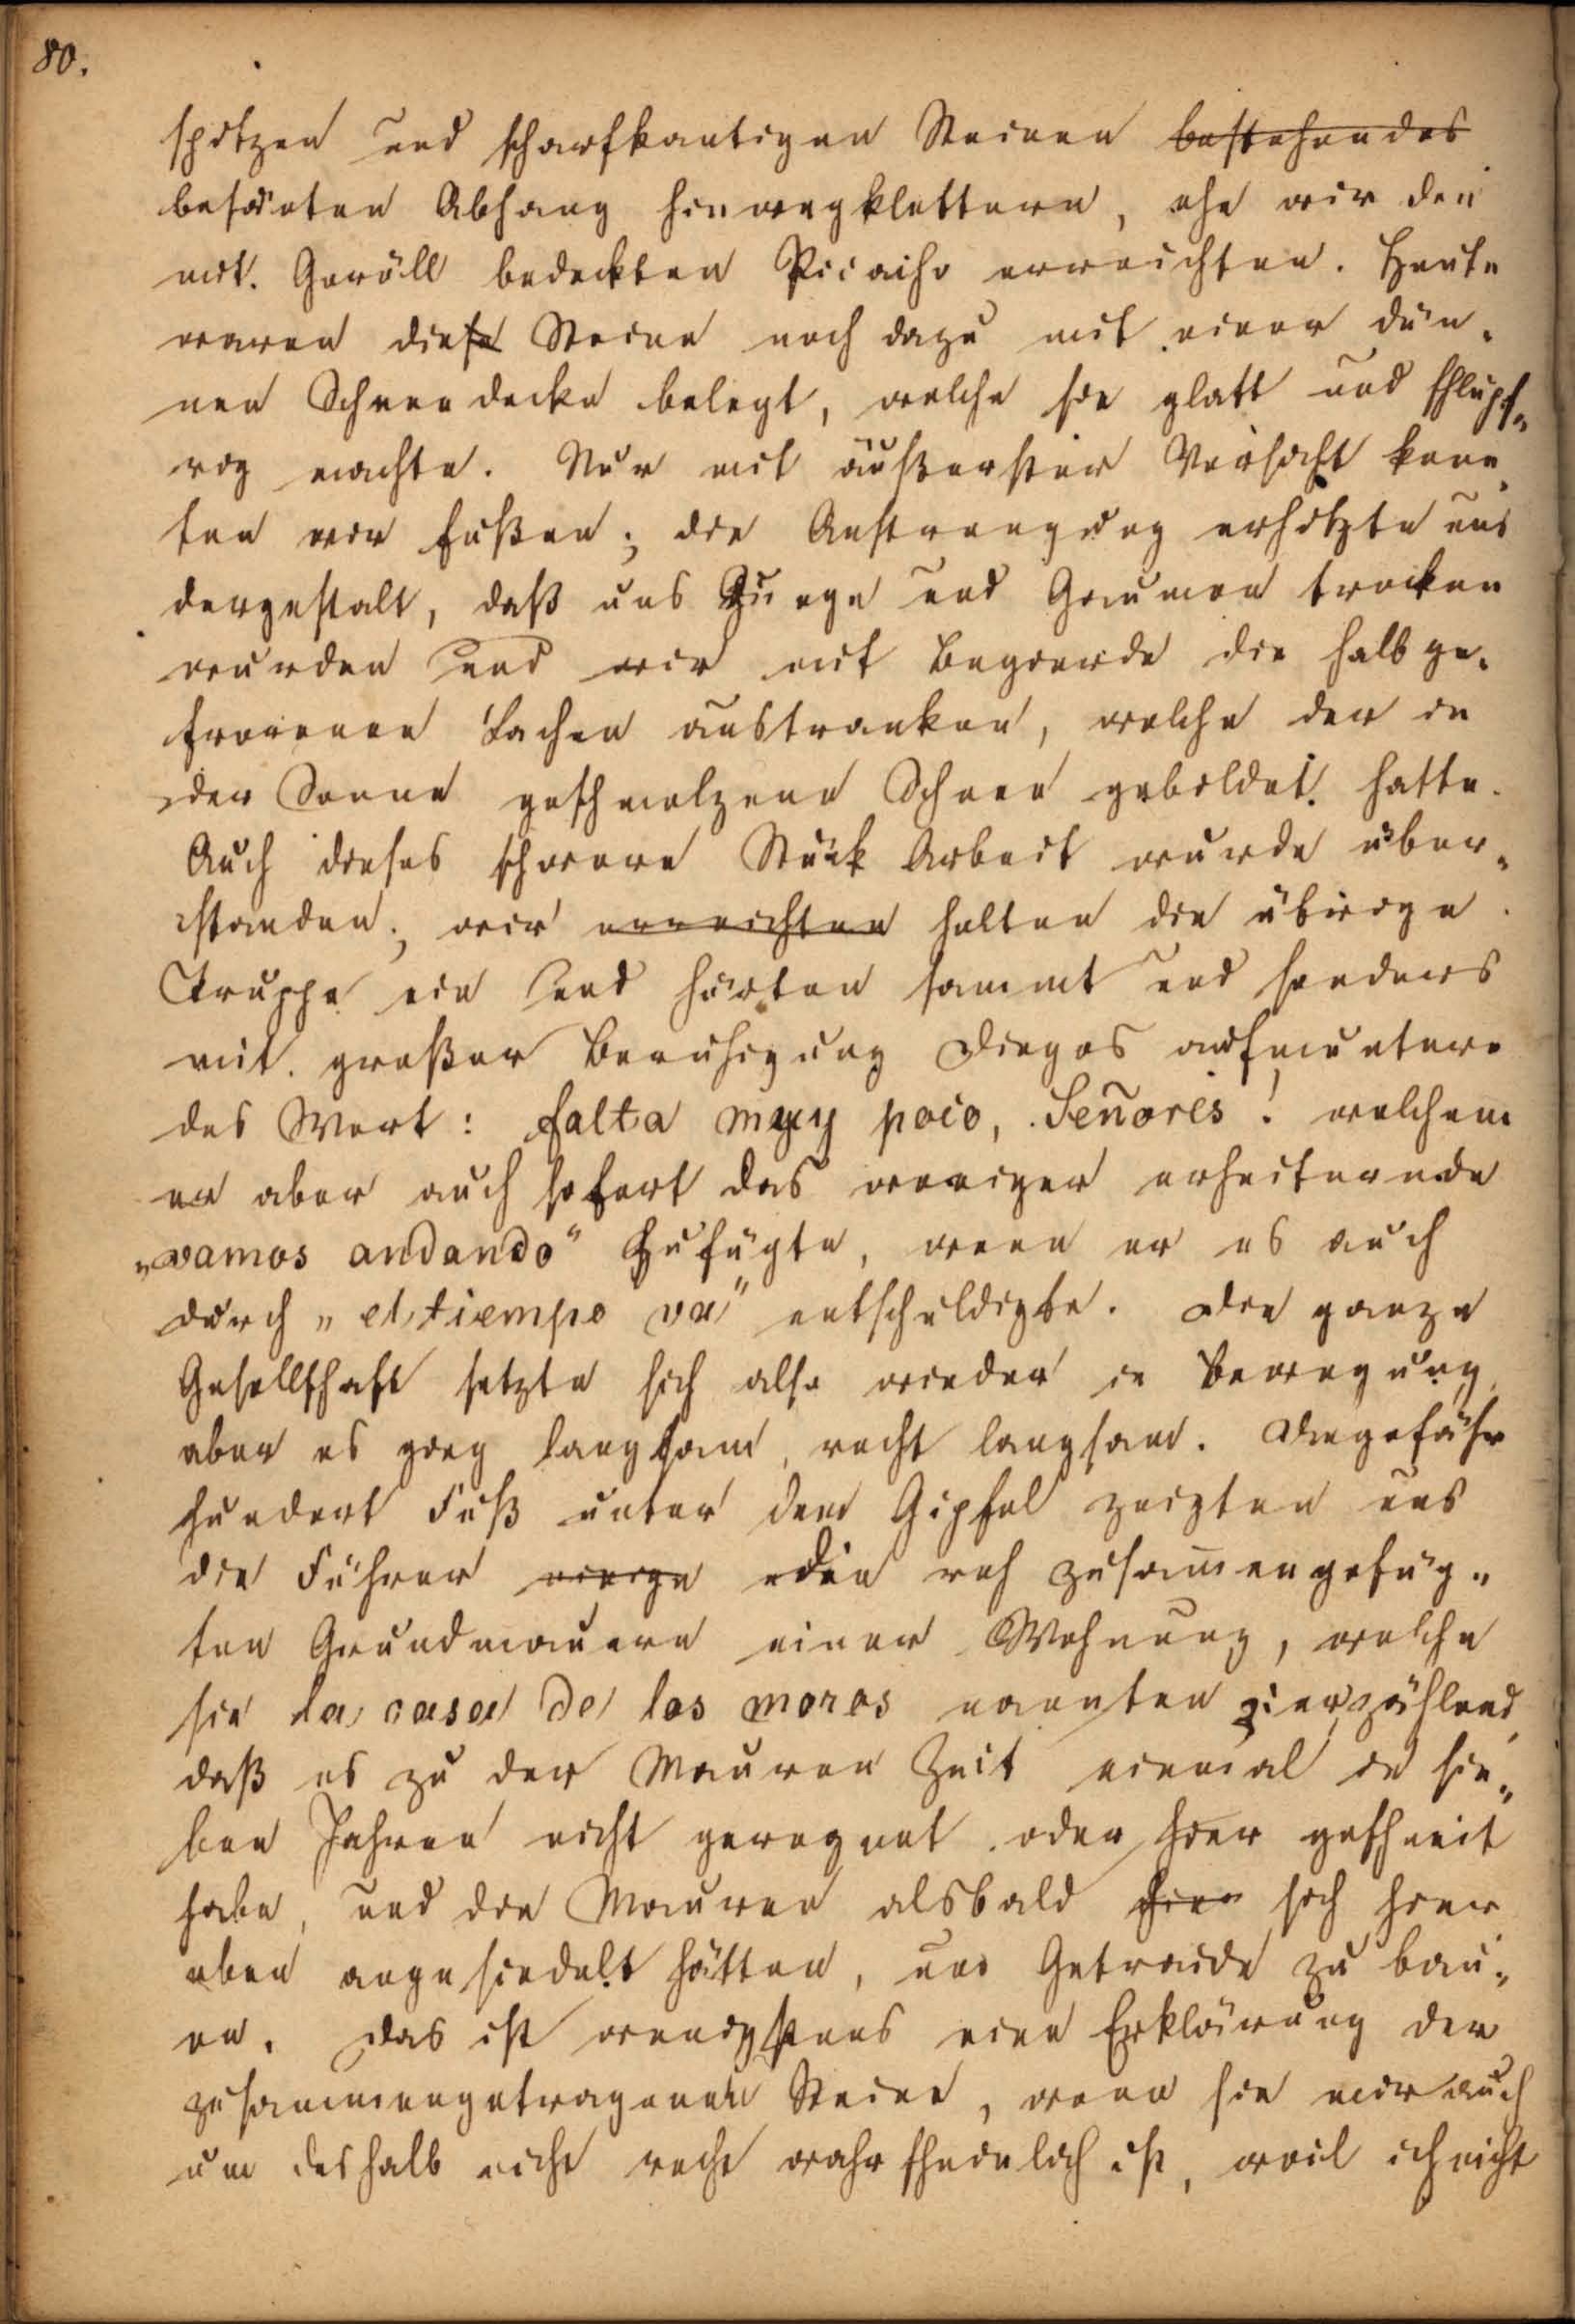 80.
spitzen und scharfkantigen Steinen bestehendes
besäeten Abhang hinwegklettern, ehe wir den
mit Geröll bedeckten Picacho erreichten. Heute
waren diese Steine noch dazu mit einer dün-
nen Schneedecke belegt, welche sie glatt und schlüpf-
rig machte. Nur mit äußerster Vorsicht konn-
ten wir fußen; die Anstrengung erhitzte uns
dergestalt, daß uns Zunge und Gaumen trocken
wurden und wir mit Begierde die halb ge-
frorenen Lachen austranken, welche der in
der Sonne geschmolzene Schnee gebildet hatte.
Auch dieses schwere Stück Arbeit wurde über-
standen; wir erreichten holten die übrige
Truppe ein und hörten sammt und sonders
mit großer Beruhigung Diegos aufmuntern-
des Wort: falta muy poco, Señores! welchem
er aber auch sofort das weniger erheiternde
„vamos andando“ zufügte, wenn er es auch
durch „el tiempo va“ entschuldigte. Die ganze
Gesellschaft setzte sich also wieder in Bewegung,
aber es ging langsam, recht langsam. Ungefähr
hundert Fuß unter dem Gipfel zeigten uns
die Führer einige die roh zusam̄engefüg-
ten Grundmauern einer Wohnung, welche
sie la casa de los moros nannten, erzählend,
daß es zu der Mauren Zeit einmal in sie-
ben Jahren nicht geregnet oder hier geschneit
habe, und die Mauren alsbald hier sich hier
oben angesiedelt hätten, um Getraide zu bau-
en. Das ist wenigstens eine Erklärung der
zusammengetragenen Steine, wenn sie mir auch
um deshalb nicht recht wahrscheinlich ist, weil ich nicht